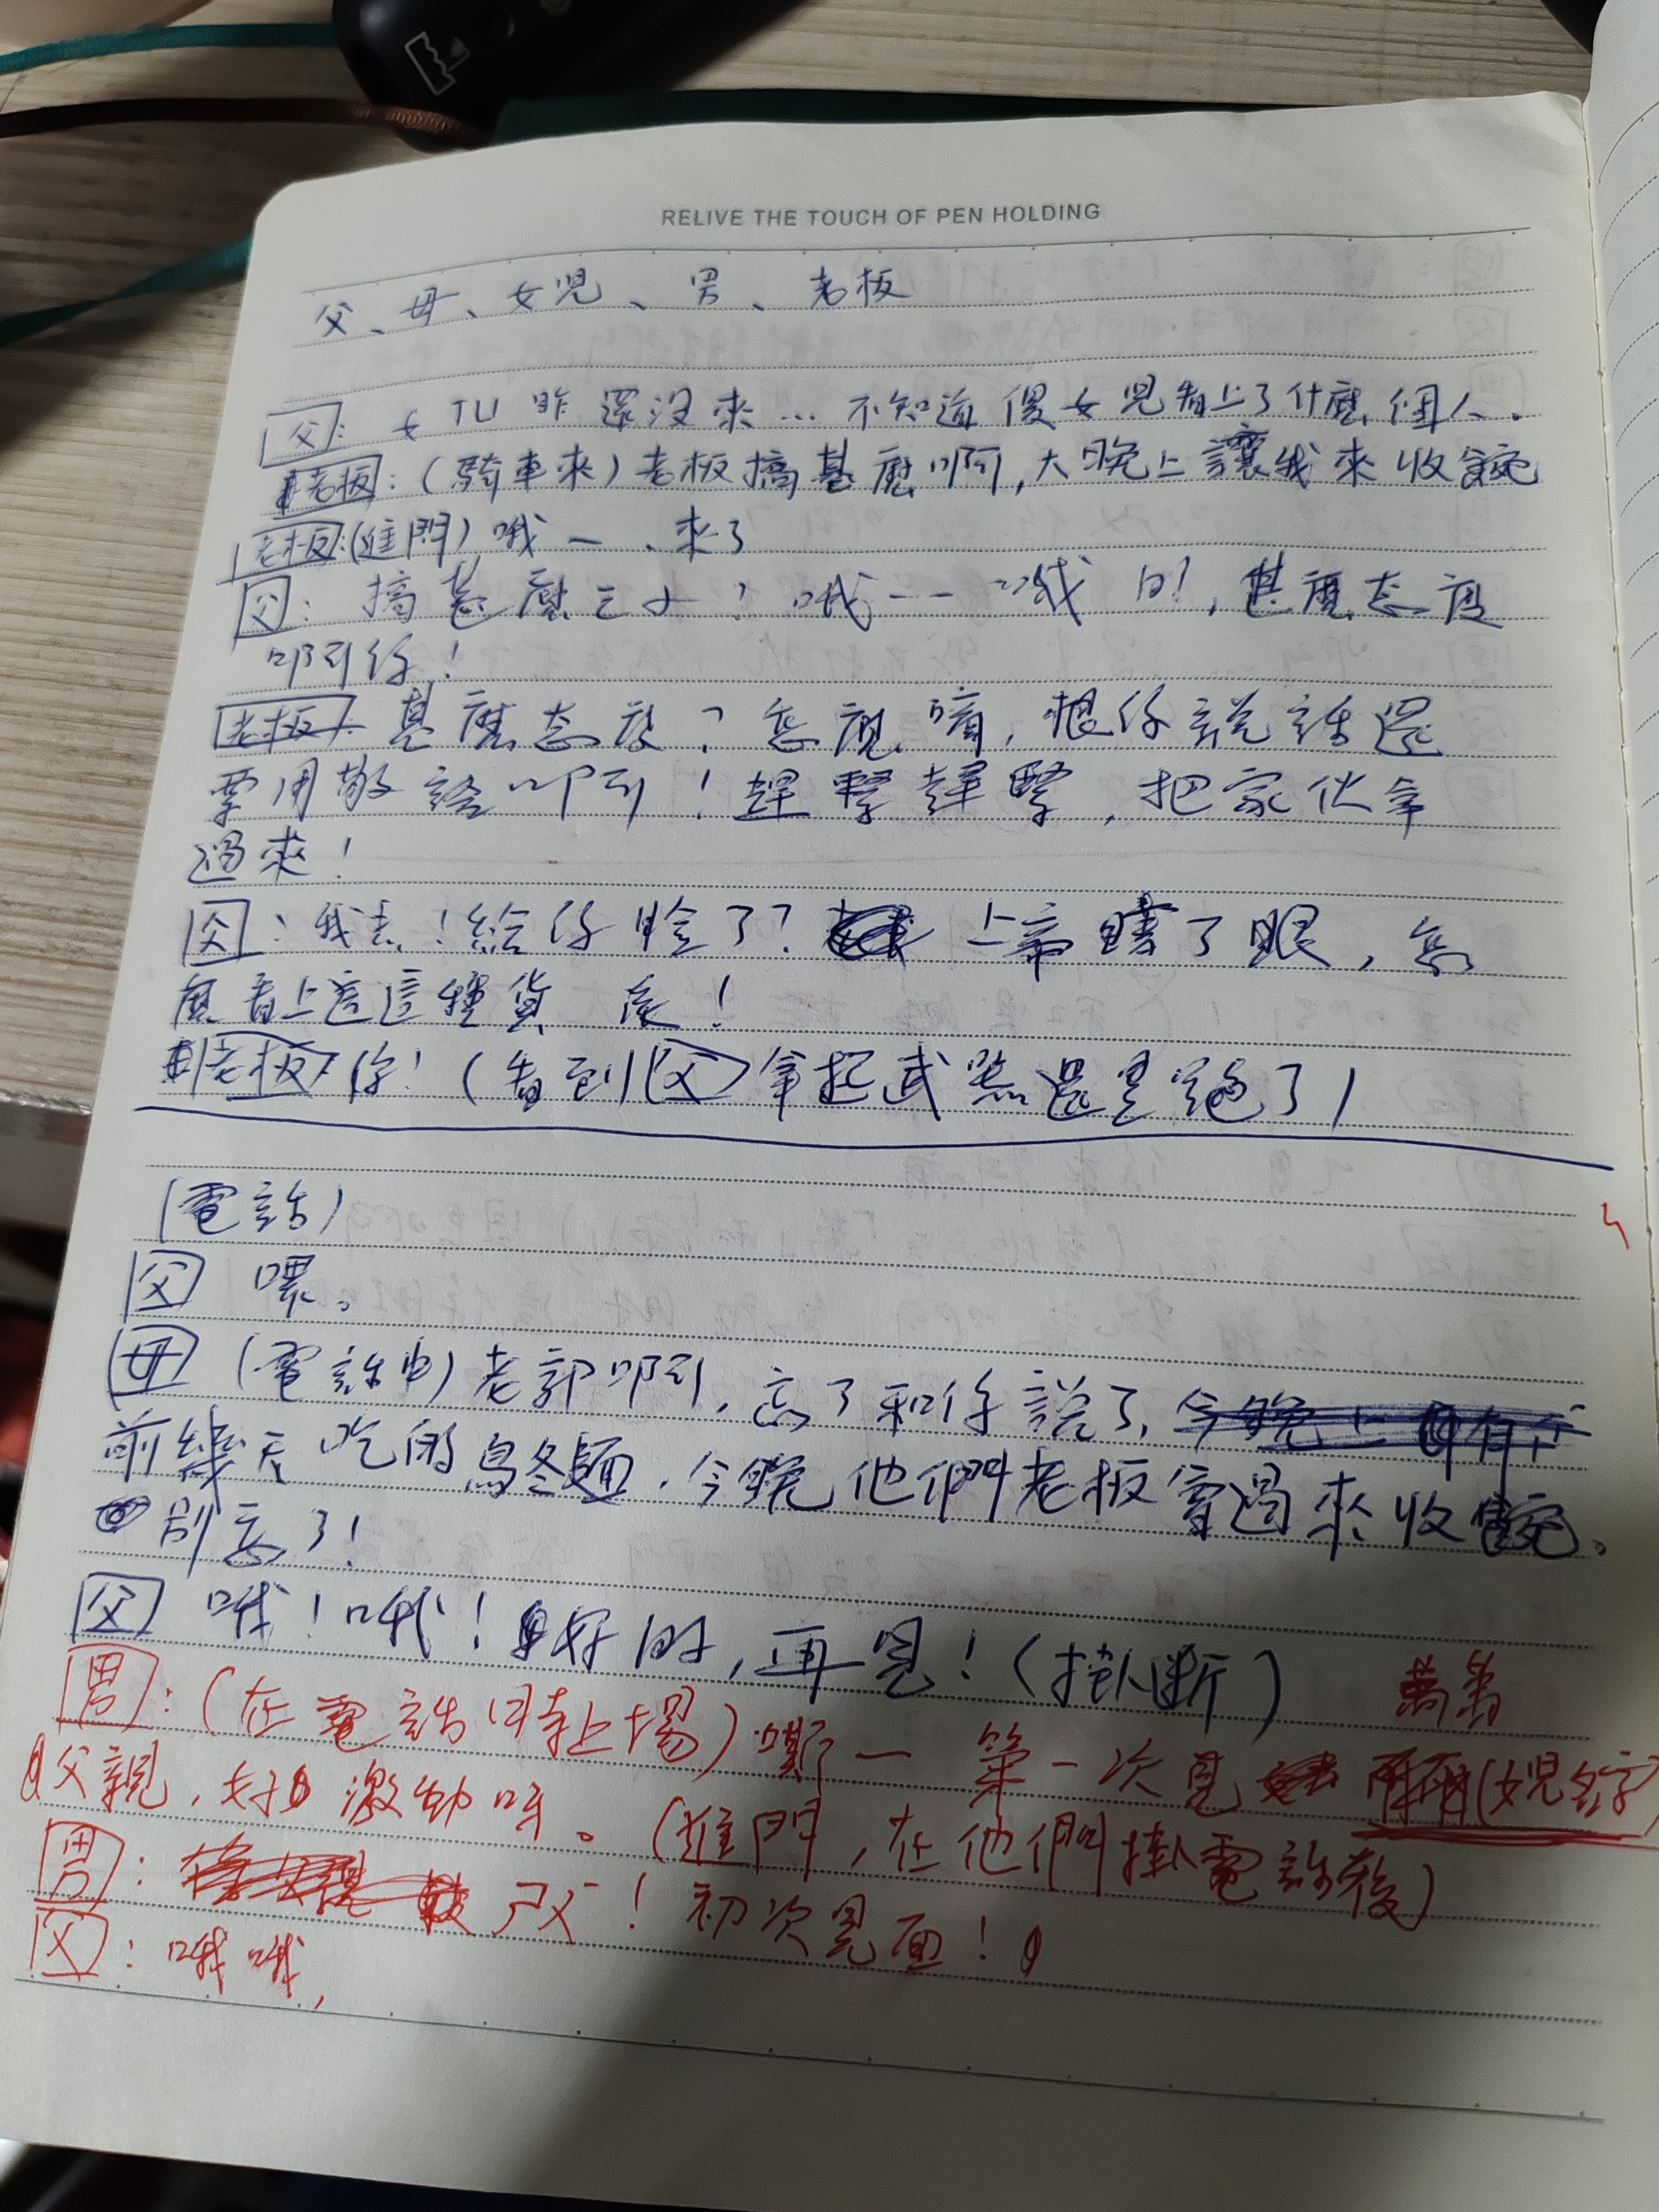 RELIVE THE TOUCH OF PEN HOLDING
父、母、女兒、男、老板
父: 还沒來... 不知道傻女兒看上了什麼個人.
老板: (騎車來) 老板搞甚麼啊, 大晚上讓我來收碗
老板: (進門) 哦一 . 來了
父: 搞甚麼 ? 哦一一哦 的!, 甚麼态度
啊你!
老板: 甚麼态度? 怎麼嘀, 根你說話還
要用敬語啊! 趕緊趕緊, 把家伙拿
過來!
父: 我去! 給你臉了? 上帝瞎了眼, 怎
麼看上這這種貨 !
老板: 你! (看到父拿起武器還是跑了)
(電話)
父 喂。
母 (電話中) 老郭啊, 忘了和你說了,
前幾天吃的烏冬麵. 今晚他們老板會過來收碗。
別忘了!
父 哦! 哦! 好的, 再見! (掛断)
男: (在電話时上場) 嘶一 第一次見 (女兒名字)
父親, 好激動呀。 (進門, 在他們掛電話後)
男: ! 初次見面!
父: 哦哦,